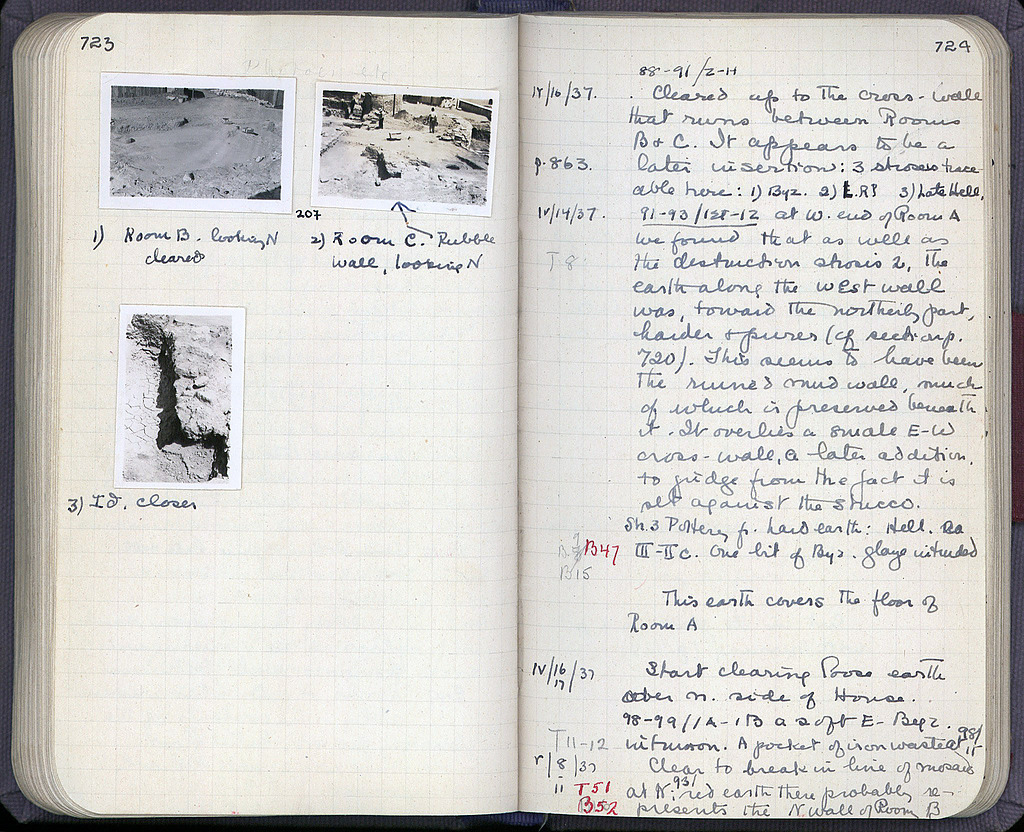 723
1) Room B. looking N
cleared
207
2) Room C. Rubble
wall, looking N
3) Id. closer
724
88-91/Z-H
IV/16/37. Cleared up to the cross-wall
that runs between Rooms
B & C. It appears to be a
p. 863. later insertion: 3 stroses trace
able here: 1) Byz. 2) L.R? 3) Late Hell.
IV/14/37. 91-93/ -12 at W. end of Room A
we found that as well as
T 8 the destruction strosis 2, the
earth along the west wall
was, toward the northerly part,
harder & purer (cf section p.
720). This seems to have been
the ruined mud wall, much
of which is preserved beneath
it. It overlies a small E-W
cross-wall, a later addition,
to judge from the fact it is
set against the stucco.
Str. 3 Pottery fr. hard earth: Hell.
B47 III-II c. One bit of Byz. glaze intruded
B15
This earth covers the floor of
Room A
IV/16/37 Start clearing loose earth
17
over n. side of House.
98-99/1A-1B a soft E-Byz.
T11-12 intrusion. A pocket of iron waste at 98/
V/8/37 Clear to break in line of mosaic
11 T51 at N. 93/ red earth then probably re-
B52 presents the N. wall of Room B